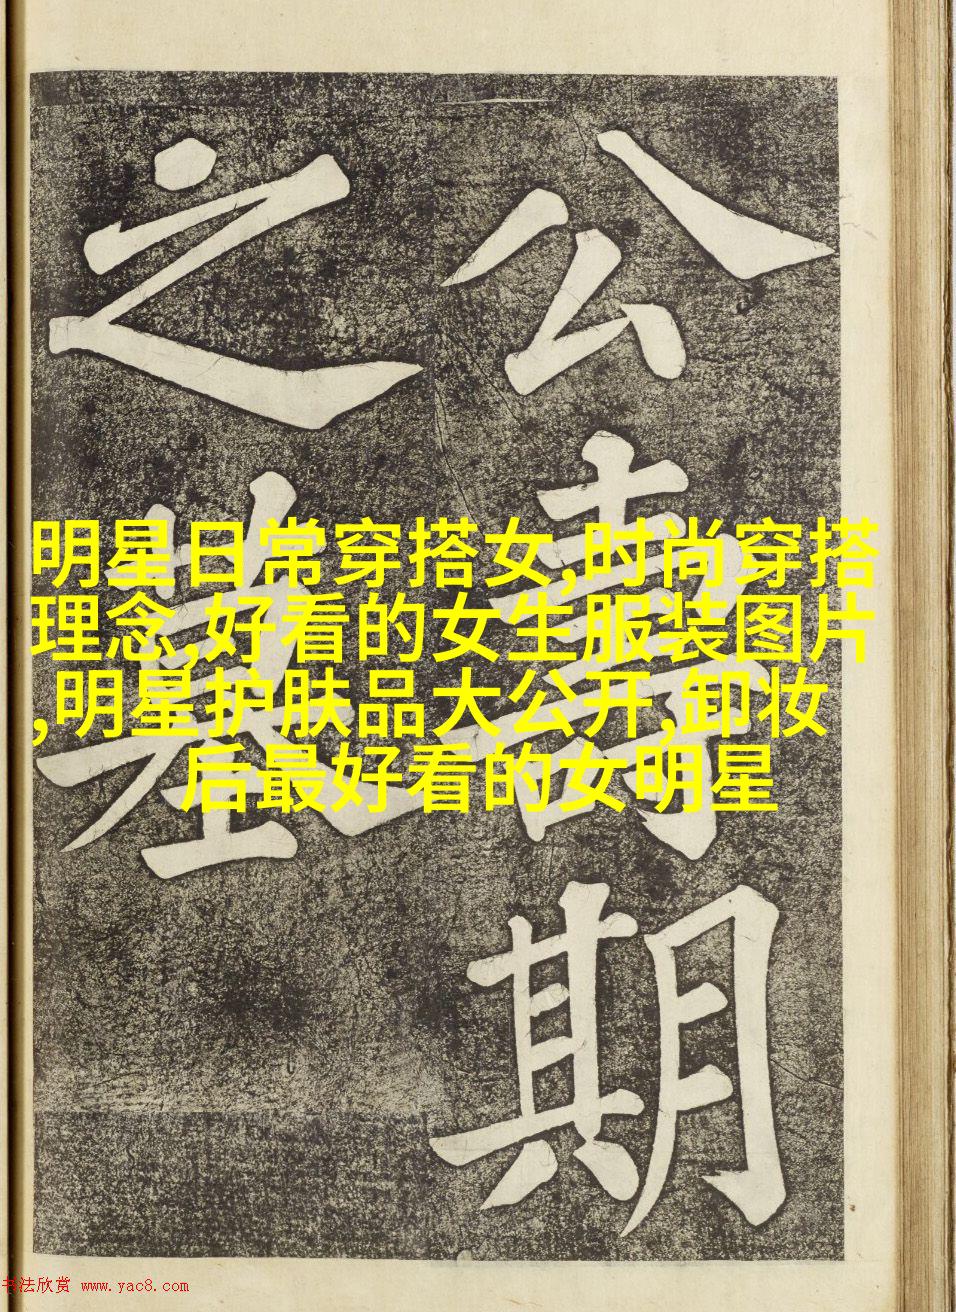 公壽期
之墓
明星日常穿搭女,时尚穿搭
理念,好看的女生服装图片
,明星护肤品大公开,卸妆
后最好看的女明星
书法欣赏 www.yac8.com